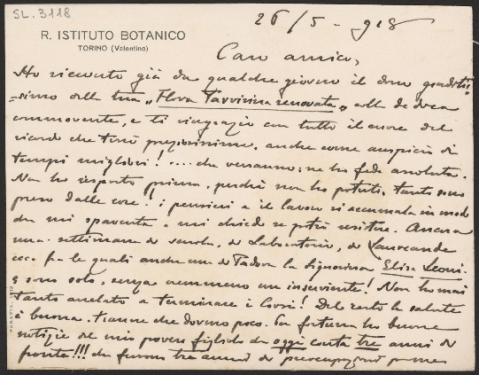 SL. 3118
26/5 - 918
R. ISTITUTO BOTANICO
TORINO (Valentino)
Caro amico,
Ho ricevuto già da qualche giorno il dono graditis=
=simo della tua „Flora Tarvisina renovata„ colla dedica
commovente, e ti ringrazio con tutto il cuore del
ricordo che terrò preziosissimo, anche come auspicio di
tempi migliori! .... che verranno; ne ho fede assoluta.
Non ho risposto prima, perchè non ho potuto, tanto sono
preso dalle cose! i pensieri e il lavoro si accumula in modo
da mi spaventa e mi chiedo se potrò resistere. Ancora
una settimana di scuola, di Laboratorio, di Laureande
ecc. fra le quali anche una di Padova la Signorina Elisa Leoni.
E sono solo, senza nemmeno un inserviente! Non ho mai
tanto anelato a terminare i Corsi! Del resto la salute
è buona, tranne che dormo poco. Per fortuna ho buone
notizie del mio povero figliolo che oggi conta tre anni di
fronte!!! che furono tre anni di preoccupazioni